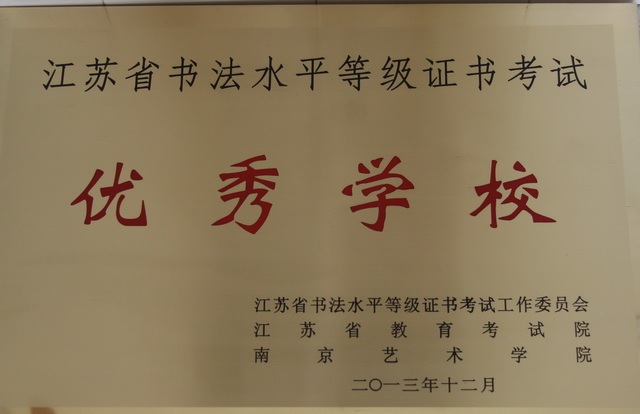 江苏省书法水平等级证书考试
优秀学校
江苏省书法水平等级证书考试工作委员会
江苏省教育考试院
南京艺术学院
二〇一三年十二月